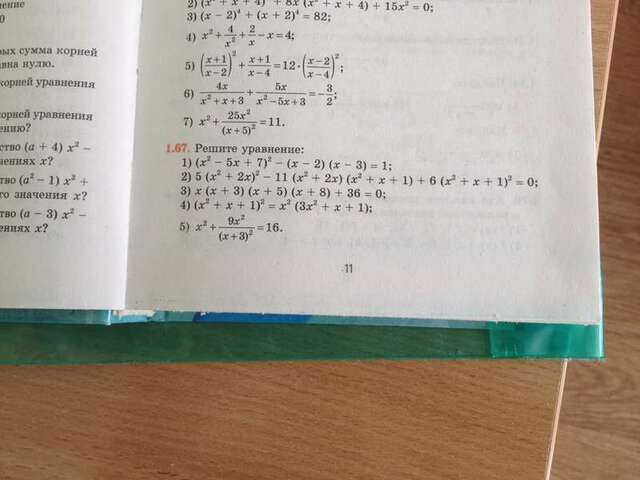 ение
0
рых сумма корней
вна нулю.
корней уравнения
орней уравнения
ению?
ство (a + 4) x² −
чениях x?
тво (a² − 1) x² +
го значения x?
ство (a − 3) x² −
ениях x?
2) (x² + x + 4)² + 8x (x² + x + 4) + 15x² = 0;
3) (x − 2)⁴ + (x + 2)⁴ = 82;
4) x² + 4/x² + 2/x − x = 4;
5) ((x+1)/(x−2))² + (x+1)/(x−4) = 12 · ((x−2)/(x−4))²;
6) 4x/(x² + x + 3) + 5x/(x² − 5x + 3) = −3/2;
7) x² + 25x²/(x + 5)² = 11.
1.67. Решите уравнение:
1) (x² − 5x + 7)² − (x − 2) (x − 3) = 1;
2) 5 (x² + 2x)² − 11 (x² + 2x) (x² + x + 1) + 6 (x² + x + 1)² = 0;
3) x (x + 3) (x + 5) (x + 8) + 36 = 0;
4) (x² + x + 1)² = x² (3x² + x + 1);
5) x² + 9x²/(x + 3)² = 16.
11